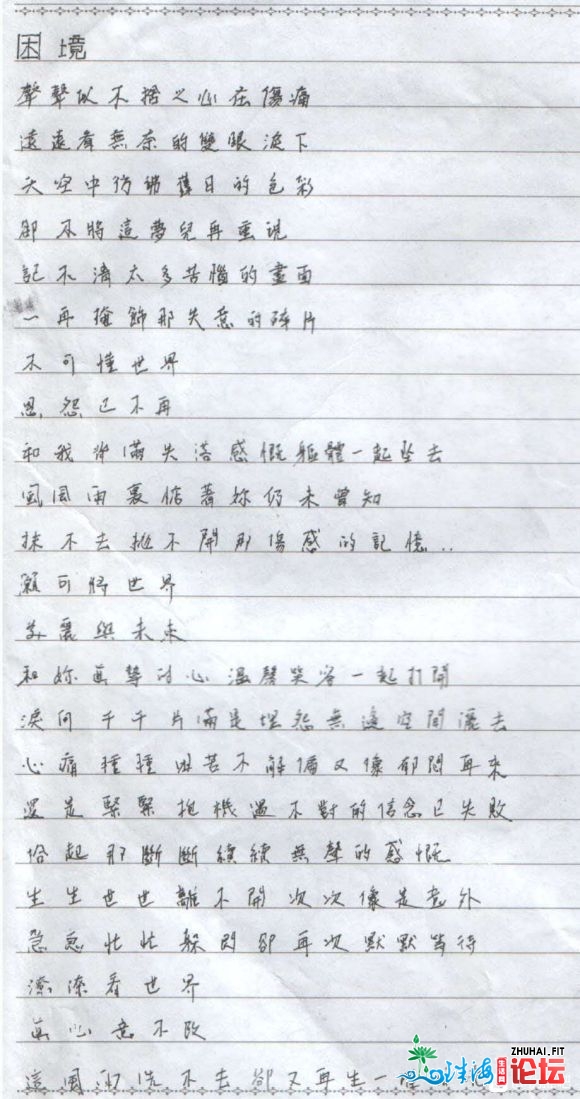 困境
聲聲似不捨之心在傷痛
遠遠看無奈的雙眼淚下
天空中彷彿舊日的色彩
卻不將這夢兒再重現
記不清太多苦惱的畫面
一再掩飾那失意的碎片
不可懂世界
恩怨已不再
和我滿失落感慨軀體一起墜去
風風雨裏惦著妳仍未曾知
抹不去拋不開那傷感的記憶..
願可將世界
美麗與未來
和妳真摯的心溫馨笑容一起打開
淚向千千片滿是埋怨無邊空間灑去
心痛種種叫苦不解備又像郁悶再來
還是緊緊抱機遇不對的信念已失敗
拾起那斷斷續續無聲的感慨
生生世世離不開次次像是意外
急急忙忙躲閃卻再次默默等待
潦潦看世界
真心意不改
這風沙洗不去卻又再生一
ZHUHAI.FIT
珠海
生活网
论坛